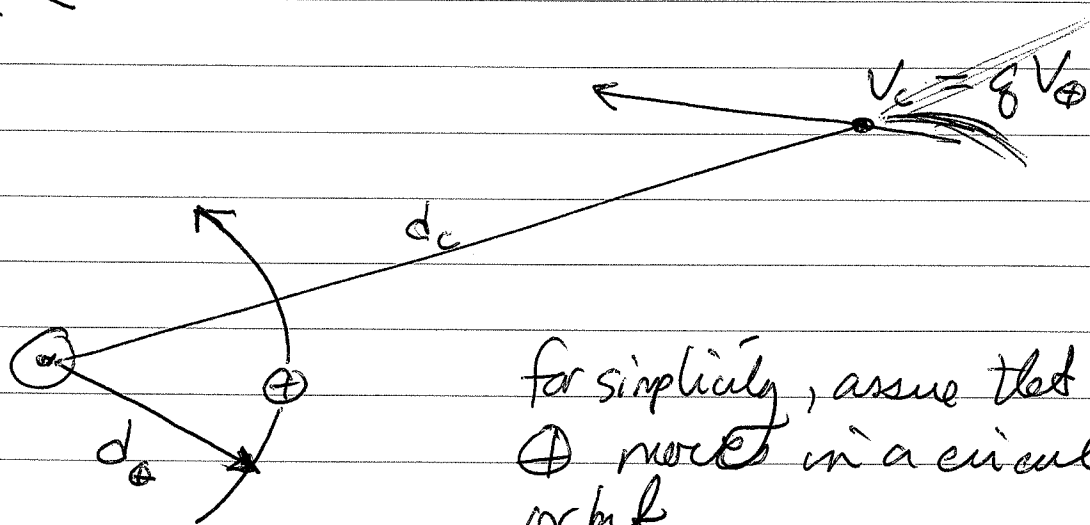 V_c = q V_⊕
d_c
d_⊕
for simplicity, assume that
⊕ moves in a circul
orbit